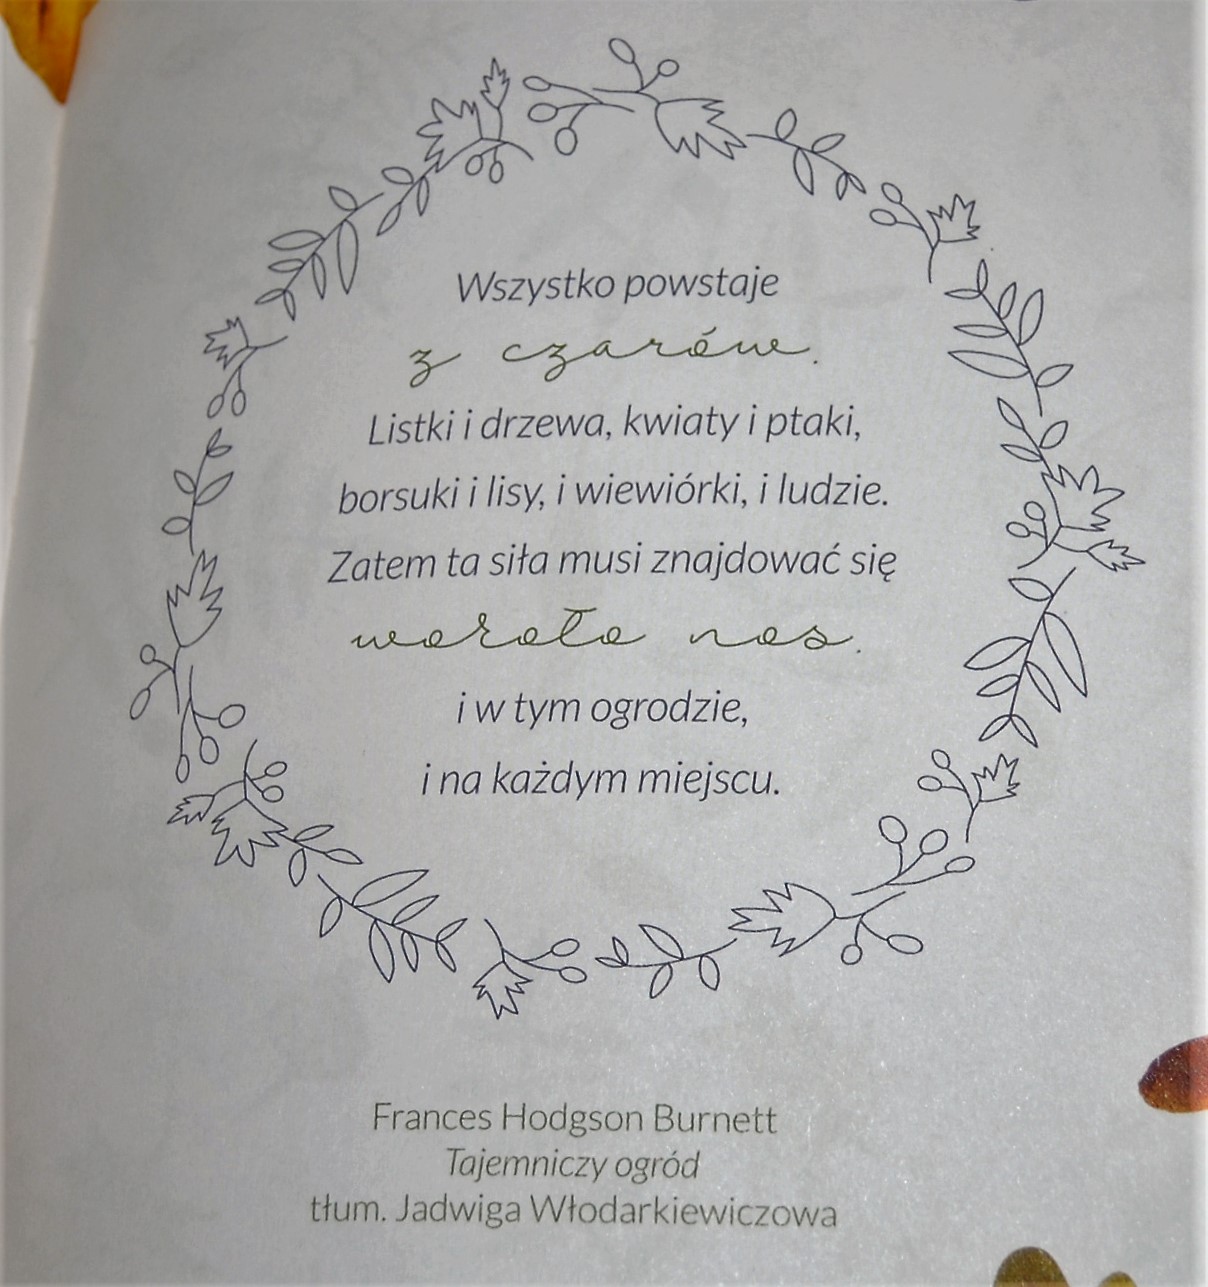 Wszystko powstaje
z czarów.
Listki i drzewa, kwiaty i ptaki,
borsuki i lisy, i wiewiórki, i ludzie.
Zatem ta siła musi znajdować się
wokoło nas.
i w tym ogrodzie,
i na każdym miejscu.
Frances Hodgson Burnett
Tajemniczy ogród
tłum. Jadwiga Włodarkiewiczowa